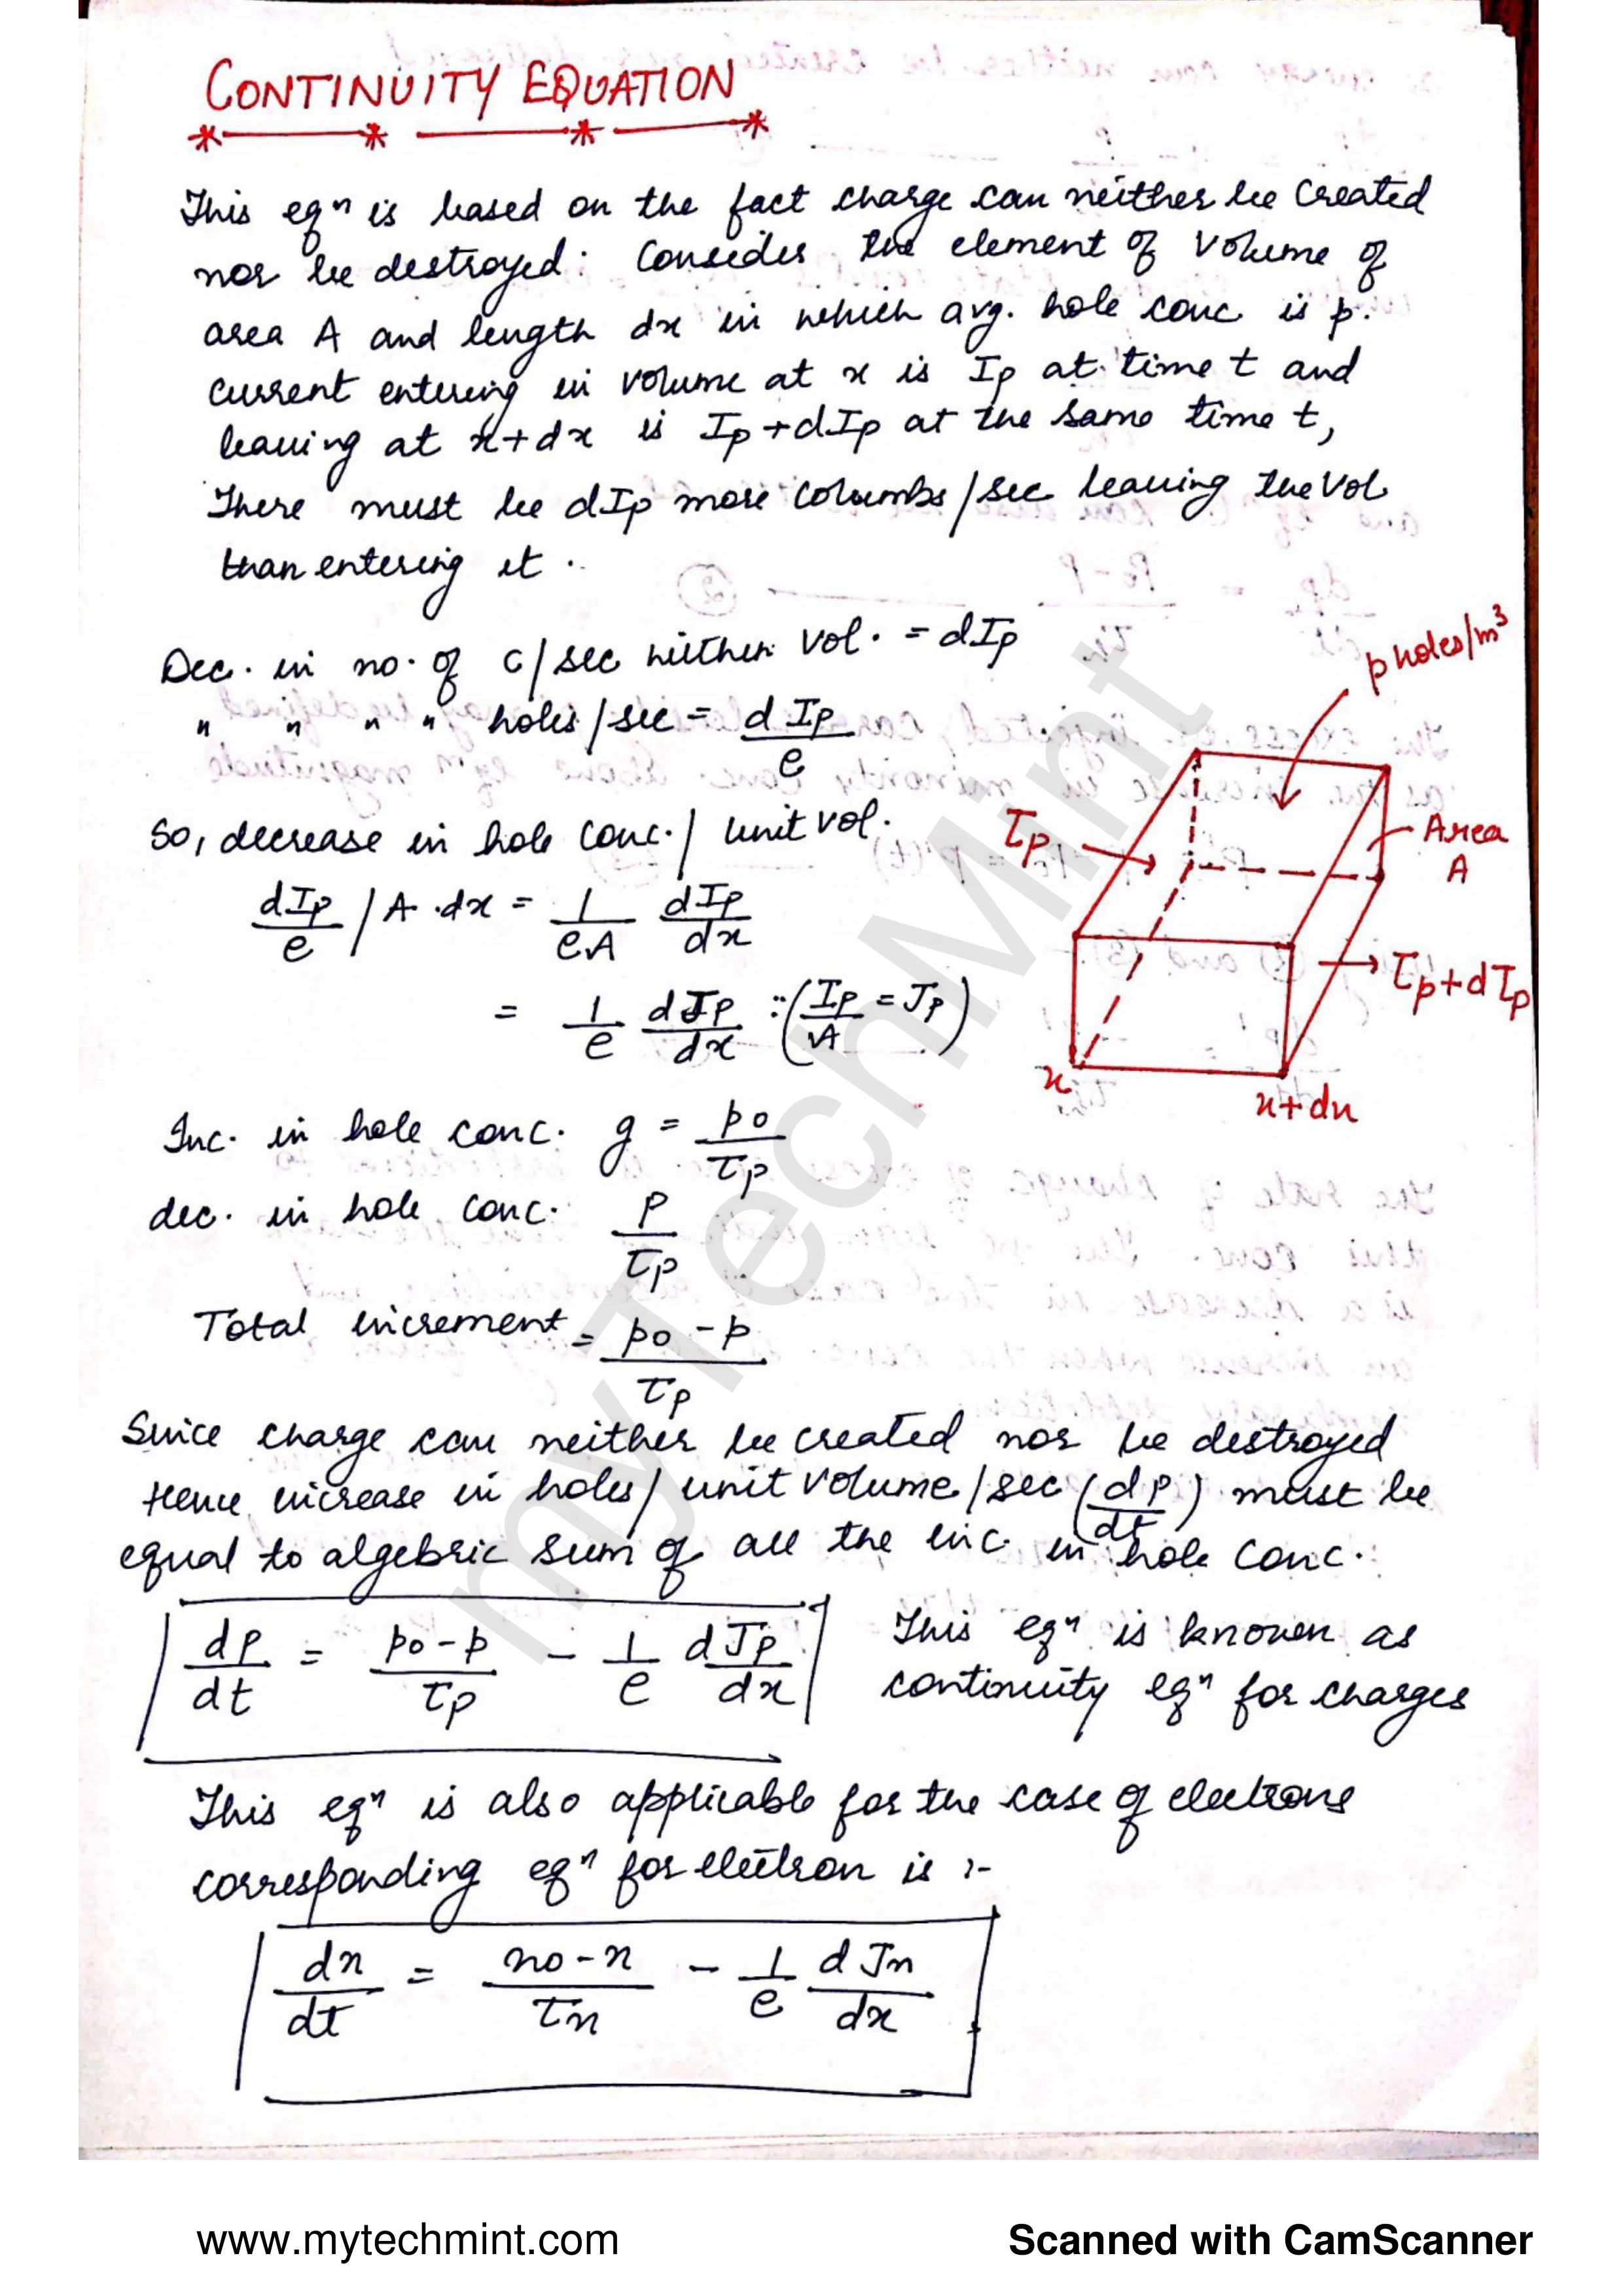 CONTINUITY EQUATION
This eqⁿ is based on the fact charge can neither be created
nor be destroyed: Consider the element of volume of
area A and length dx in which avg. hole conc is p.
current entering in volume at x is Ip at time t and
leaving at x+dx is Ip+dIp at the same time t,
There must be dIp more columbs/sec leaving the vol
than entering it.
Dec. in no. of c/sec within vol. = dIp
" " " " holes/sec = dIp/e
p holes/m³
So, decrease in hole conc./unit vol.
Ip
Area
A
dIp/e / A·dx = 1/eA dIp/dx
Ip+dIp
= 1/e dJp/dx ∵(Ip/A = Jp)
x
x+dx
Inc. in hole conc. g = po/τp
dec. in hole conc. p/τp
Total increment = po-p/τp
Since charge can neither be created nor be destroyed
Hence increase in holes/unit volume/sec (dp/dt) must be
equal to algebric sum of all the inc. in hole conc.
dp/dt = po-p/τp - 1/e dJp/dx This eqⁿ is known as
continuity eqⁿ for charges
This eqⁿ is also applicable for the case of electrons
corresponding eqⁿ for electron is :-
dn/dt = no-n/τn - 1/e dJn/dx
myTechMint
www.mytechmint.com
Scanned with CamScanner